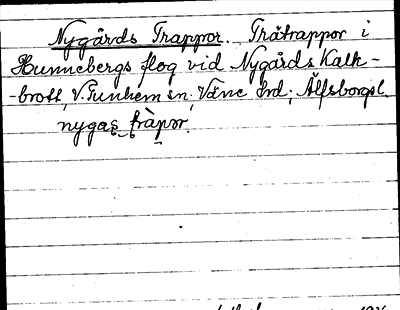 Nygårds Trappor. Trätrappor i
Hunnebergs flog vid Nygårds Kalk-
-brott, V. Tunhem sn, Väne hrd, Älfsborgsl.
nygas fràpor.